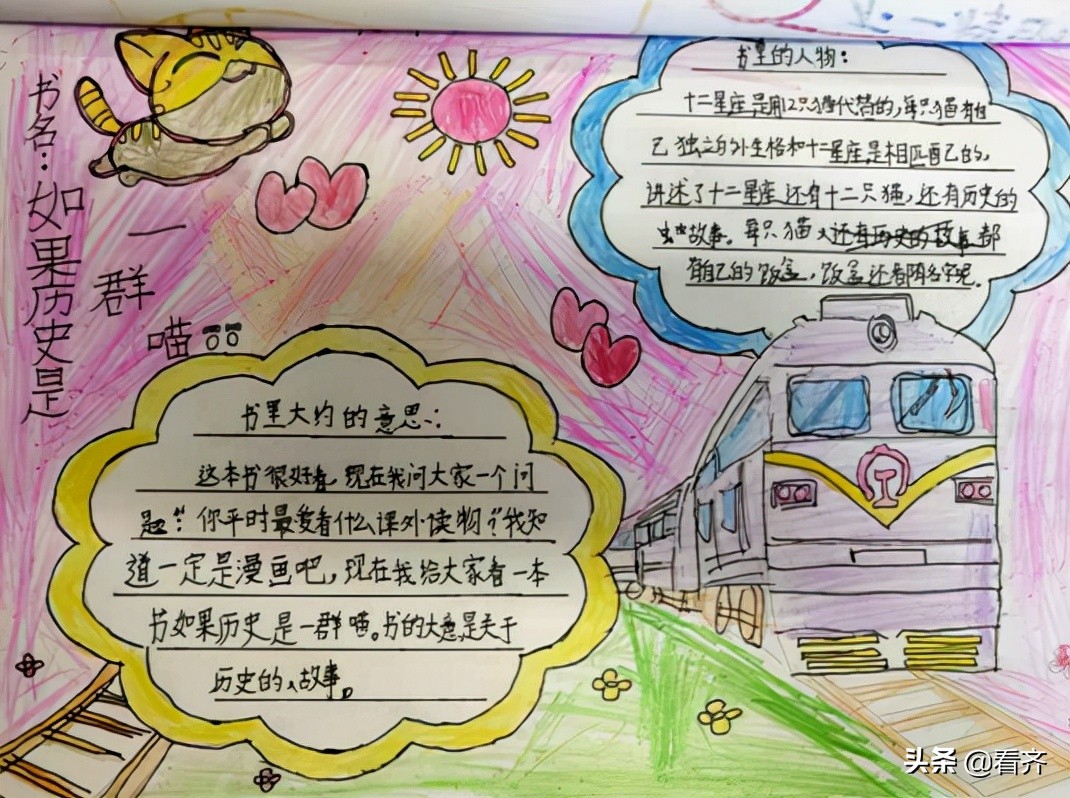 书名：如果历史是
一群
喵
书里的人物：
十二星座是用12只猫代替的，每只猫有自
己独立的外生格和十二星座是相匹配己的。
讲述了十二星座还有十二只猫，还有历史的
故事。每只猫还有历史的故事都
有自己的饭盒，饭盒还有名字呢。
书里大约的意思：
这本书很好看，现在我问大家一个问
题："你平时最爱看什么课外读物？"我知
道一定是漫画吧，现在我给大家看一本
书如果历史是一群喵。书的大意是关于
历史的、故事。
头条 @看齐